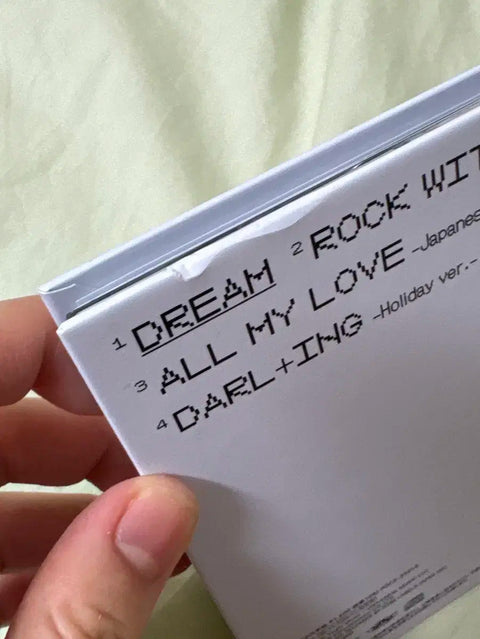 1 DREAM 2 ROCK WIT
3 ALL MY LOVE -Japanes
4 DARL+ING -Holiday ver.-